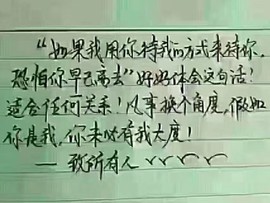 “如果我用你待我的方式来待你，
恐怕你早已离去”好好体会这句话！
适合任何关系！凡事换个角度，假如
你是我，你未必有我大度！
——致所有人